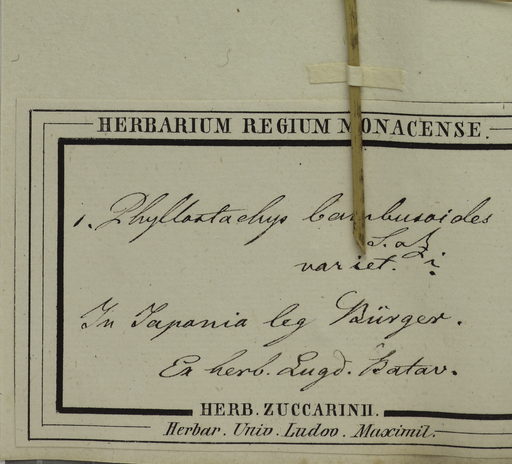 HERBARIUM REGIUM MONACENSE.
1. Phyllostachys bambusoides
S. a Z.
variet. ?
In Japonia leg Bürger.
Ex herb. Lugd. Batav.
HERB. ZUCCARINII.
Herbar. Univ. Ludov. Maximil.